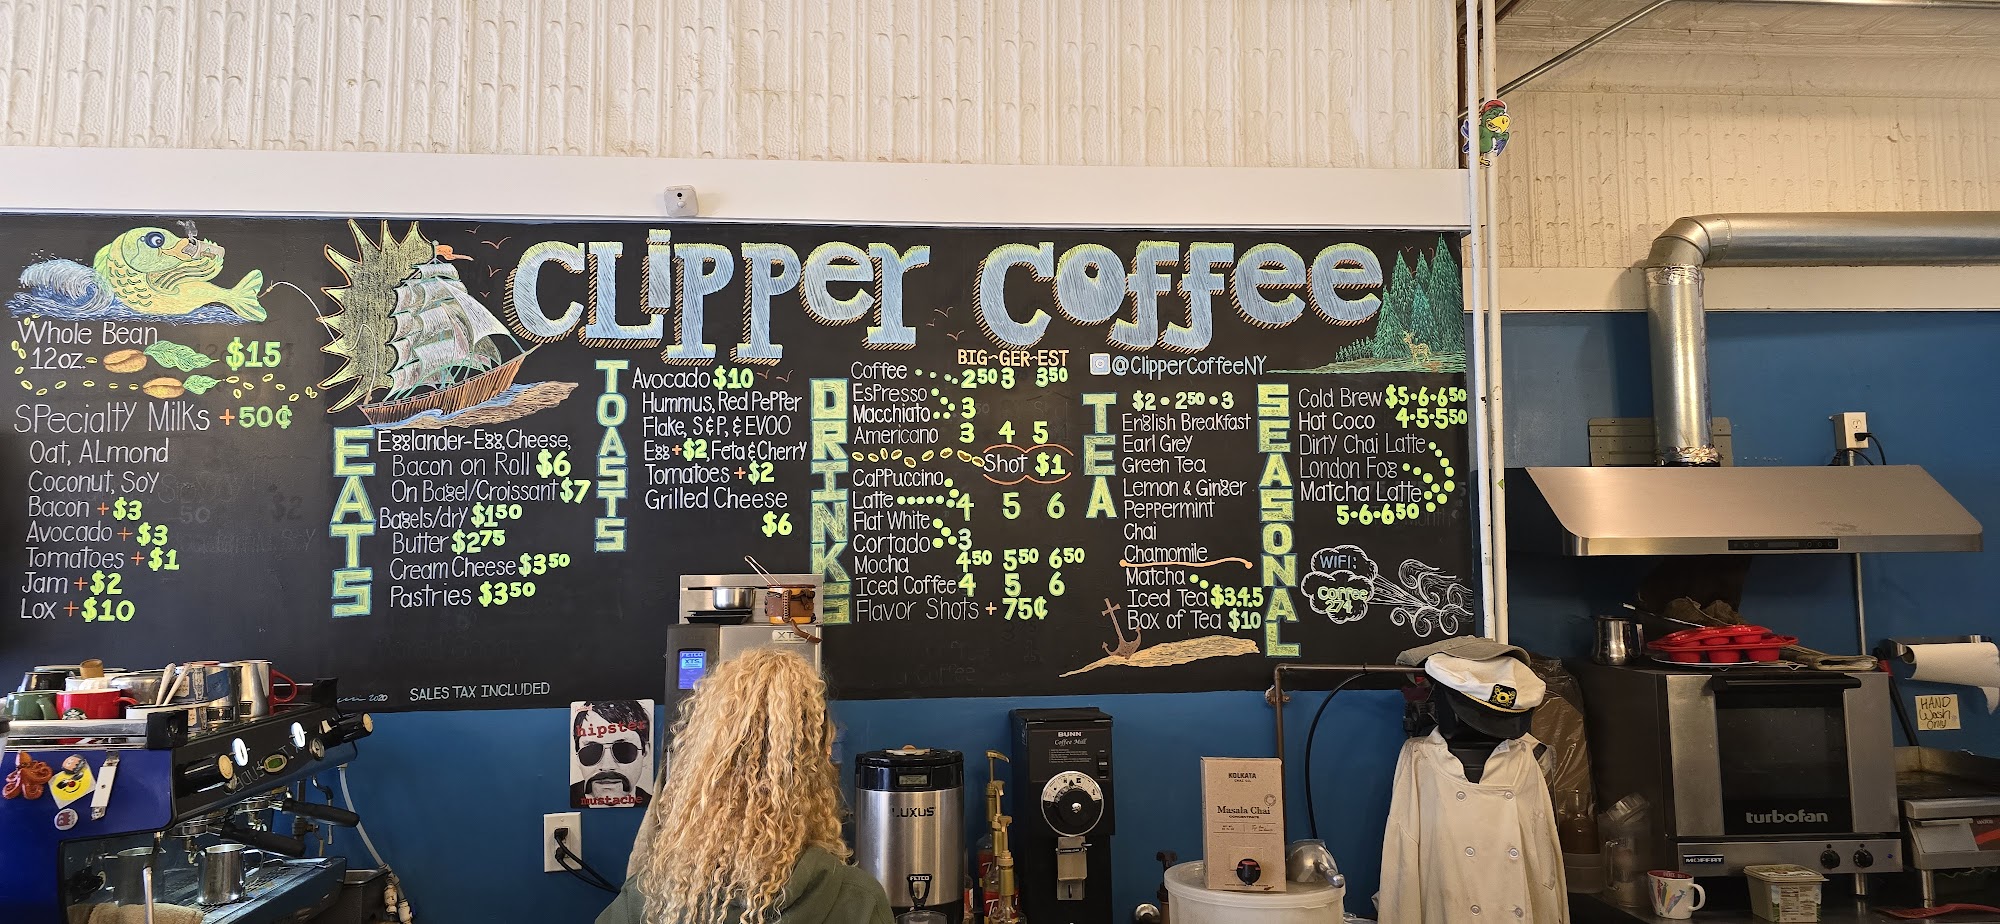 CLiPPer COFFee
Whole Bean
12oz. $15
Specialty Milks +50¢
Oat, Almond
Coconut, Soy
Bacon +$3
Avocado +$3
Tomatoes +$1
Jam +$2
Lox +$10
EATS
Egglander-Egg, Cheese,
Bacon on Roll $6
On Bagel/Croissant $7
Bagels/dry $1.50
Butter $2.75
Cream Cheese $3.50
Pastries $3.50
2020
SALES TAX INCLUDED
TOASTS
Avocado $10
Hummus, Red Pepper
Flake, S&P, & EVOO
Egg +$2, Feta & Cherry
Tomatoes +$2
Grilled Cheese
$6
DRINKS
BIG-GER-EST
Coffee 2.50 3 3.50
Espresso
Macchiato 3
Americano 3 4 5
Shot $1
Cappuccino
Latte 4 5 6
Flat White
Cortado 3
Mocha 4.50 5.50 6.50
Iced Coffee 4 5 6
Flavor Shots + 75¢
@ClipperCoffeeNY
TEA
$2 • 2.50 • 3
English Breakfast
Earl Grey
Green Tea
Lemon & Ginger
Peppermint
Chai
Chamomile
Matcha
Iced Tea $3.4.5
Box of Tea $10
SEASONAL
Cold Brew $5-6-6.50
Hot Coco 4-5-5.50
Dirty Chai Latte
London Fog
Matcha Latte
5-6-6.50
WIFI:
Coffee
274
FETCO
XTS
XTS
hipster
mustache
LUXUS
FETCO
BUNN
Coffee Mill
KOLKATA
CHAI CO.
Masala Chai
CONCENTRATE
turbofan
MOFFAT
HAND
Wash
Only